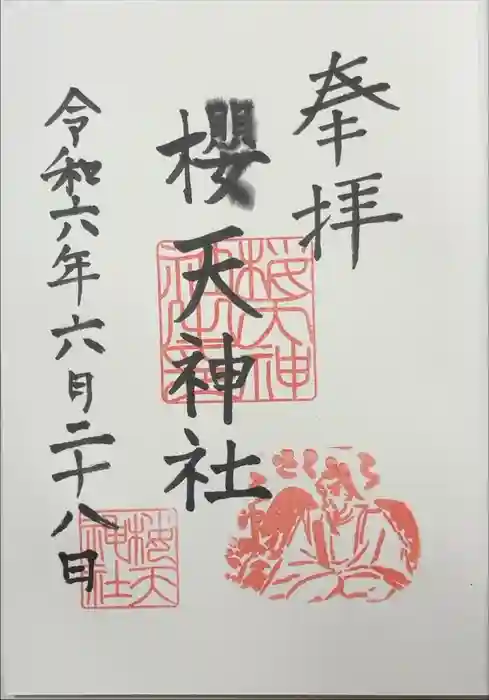 奉拝
櫻天神社
令和六年六月二十八日
桜天神
桜天神社
さくら